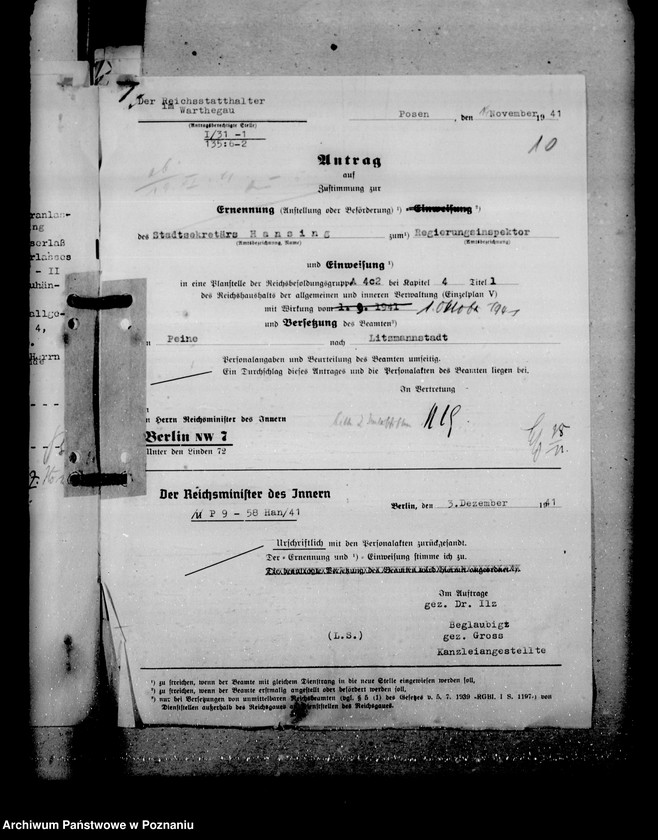 Der Reichsstatthalter
im Warthegau
(Antragsberechtigte Stelle)
I/31 -1
135:6-2
Posen, den 1. November 1941
10
Antrag
auf
Zustimmung zur
Ernennung (Anstellung oder Beförderung) ¹) - Einweisung ¹)
des Stadtsekretärs Hansing zum ¹) Regierungsinspektor
(Amtsbezeichnung, Name) (Amtsbezeichnung)
und Einweisung ¹)
in eine Planstelle der Reichsbesoldungsgruppe A 4c2 bei Kapitel 4 Titel 1
des Reichshaushalts der allgemeinen und inneren Verwaltung (Einzelplan V)
mit Wirkung vom 1. 9. 1941 1. Oktober 1941
und Versetzung des Beamten ¹)
Peine nach Litzmannstadt
Personalangaben und Beurteilung des Beamten umseitig.
Ein Durchschlag dieses Antrages und die Personalakten des Beamten liegen bei.
In Vertretung
Herrn Reichsminister des Innern
Berlin NW 7
Unter den Linden 72
Der Reichsminister des Innern
P 9 - 58 Han/41
Berlin, den 3. Dezember 1941
Urschriftlich mit den Personalakten zurückgesandt.
Der - Ernennung und ¹) - Einweisung stimme ich zu.
Im Auftrage
gez. Dr. Ilz
Beglaubigt
(L.S.) gez. Gross
Kanzleiangestellte
¹) zu streichen, wenn der Beamte mit gleichem Dienstrang in die neue Stelle eingewiesen werden soll,
²) zu streichen, wenn der Beamte erstmalig angestellt oder befördert werden soll,
³) nur bei Versetzungen von unmittelbaren Reichsbeamten (vgl. § 5 (1) des Gesetzes v. 5. 7. 1939 -RGBl. I S. 1197-) von
Dienststellen außerhalb des Reichsgaues an Dienststellen des Reichsgaues.
Archiwum Państwowe w Poznaniu